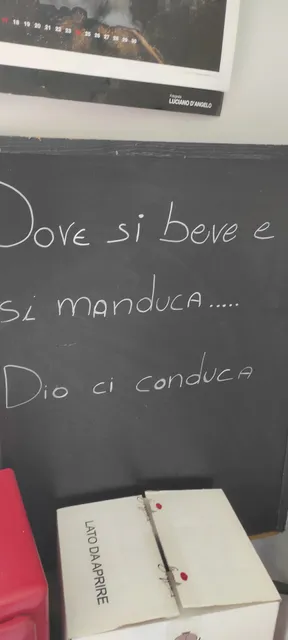 17 18 19 20 21 22 23 24 25 26 27 28 29 30
Fotografie
LUCIANO D'ANGELO
Dove si beve e
si manduca.....
Dio ci conduca
LATO DA APRIRE